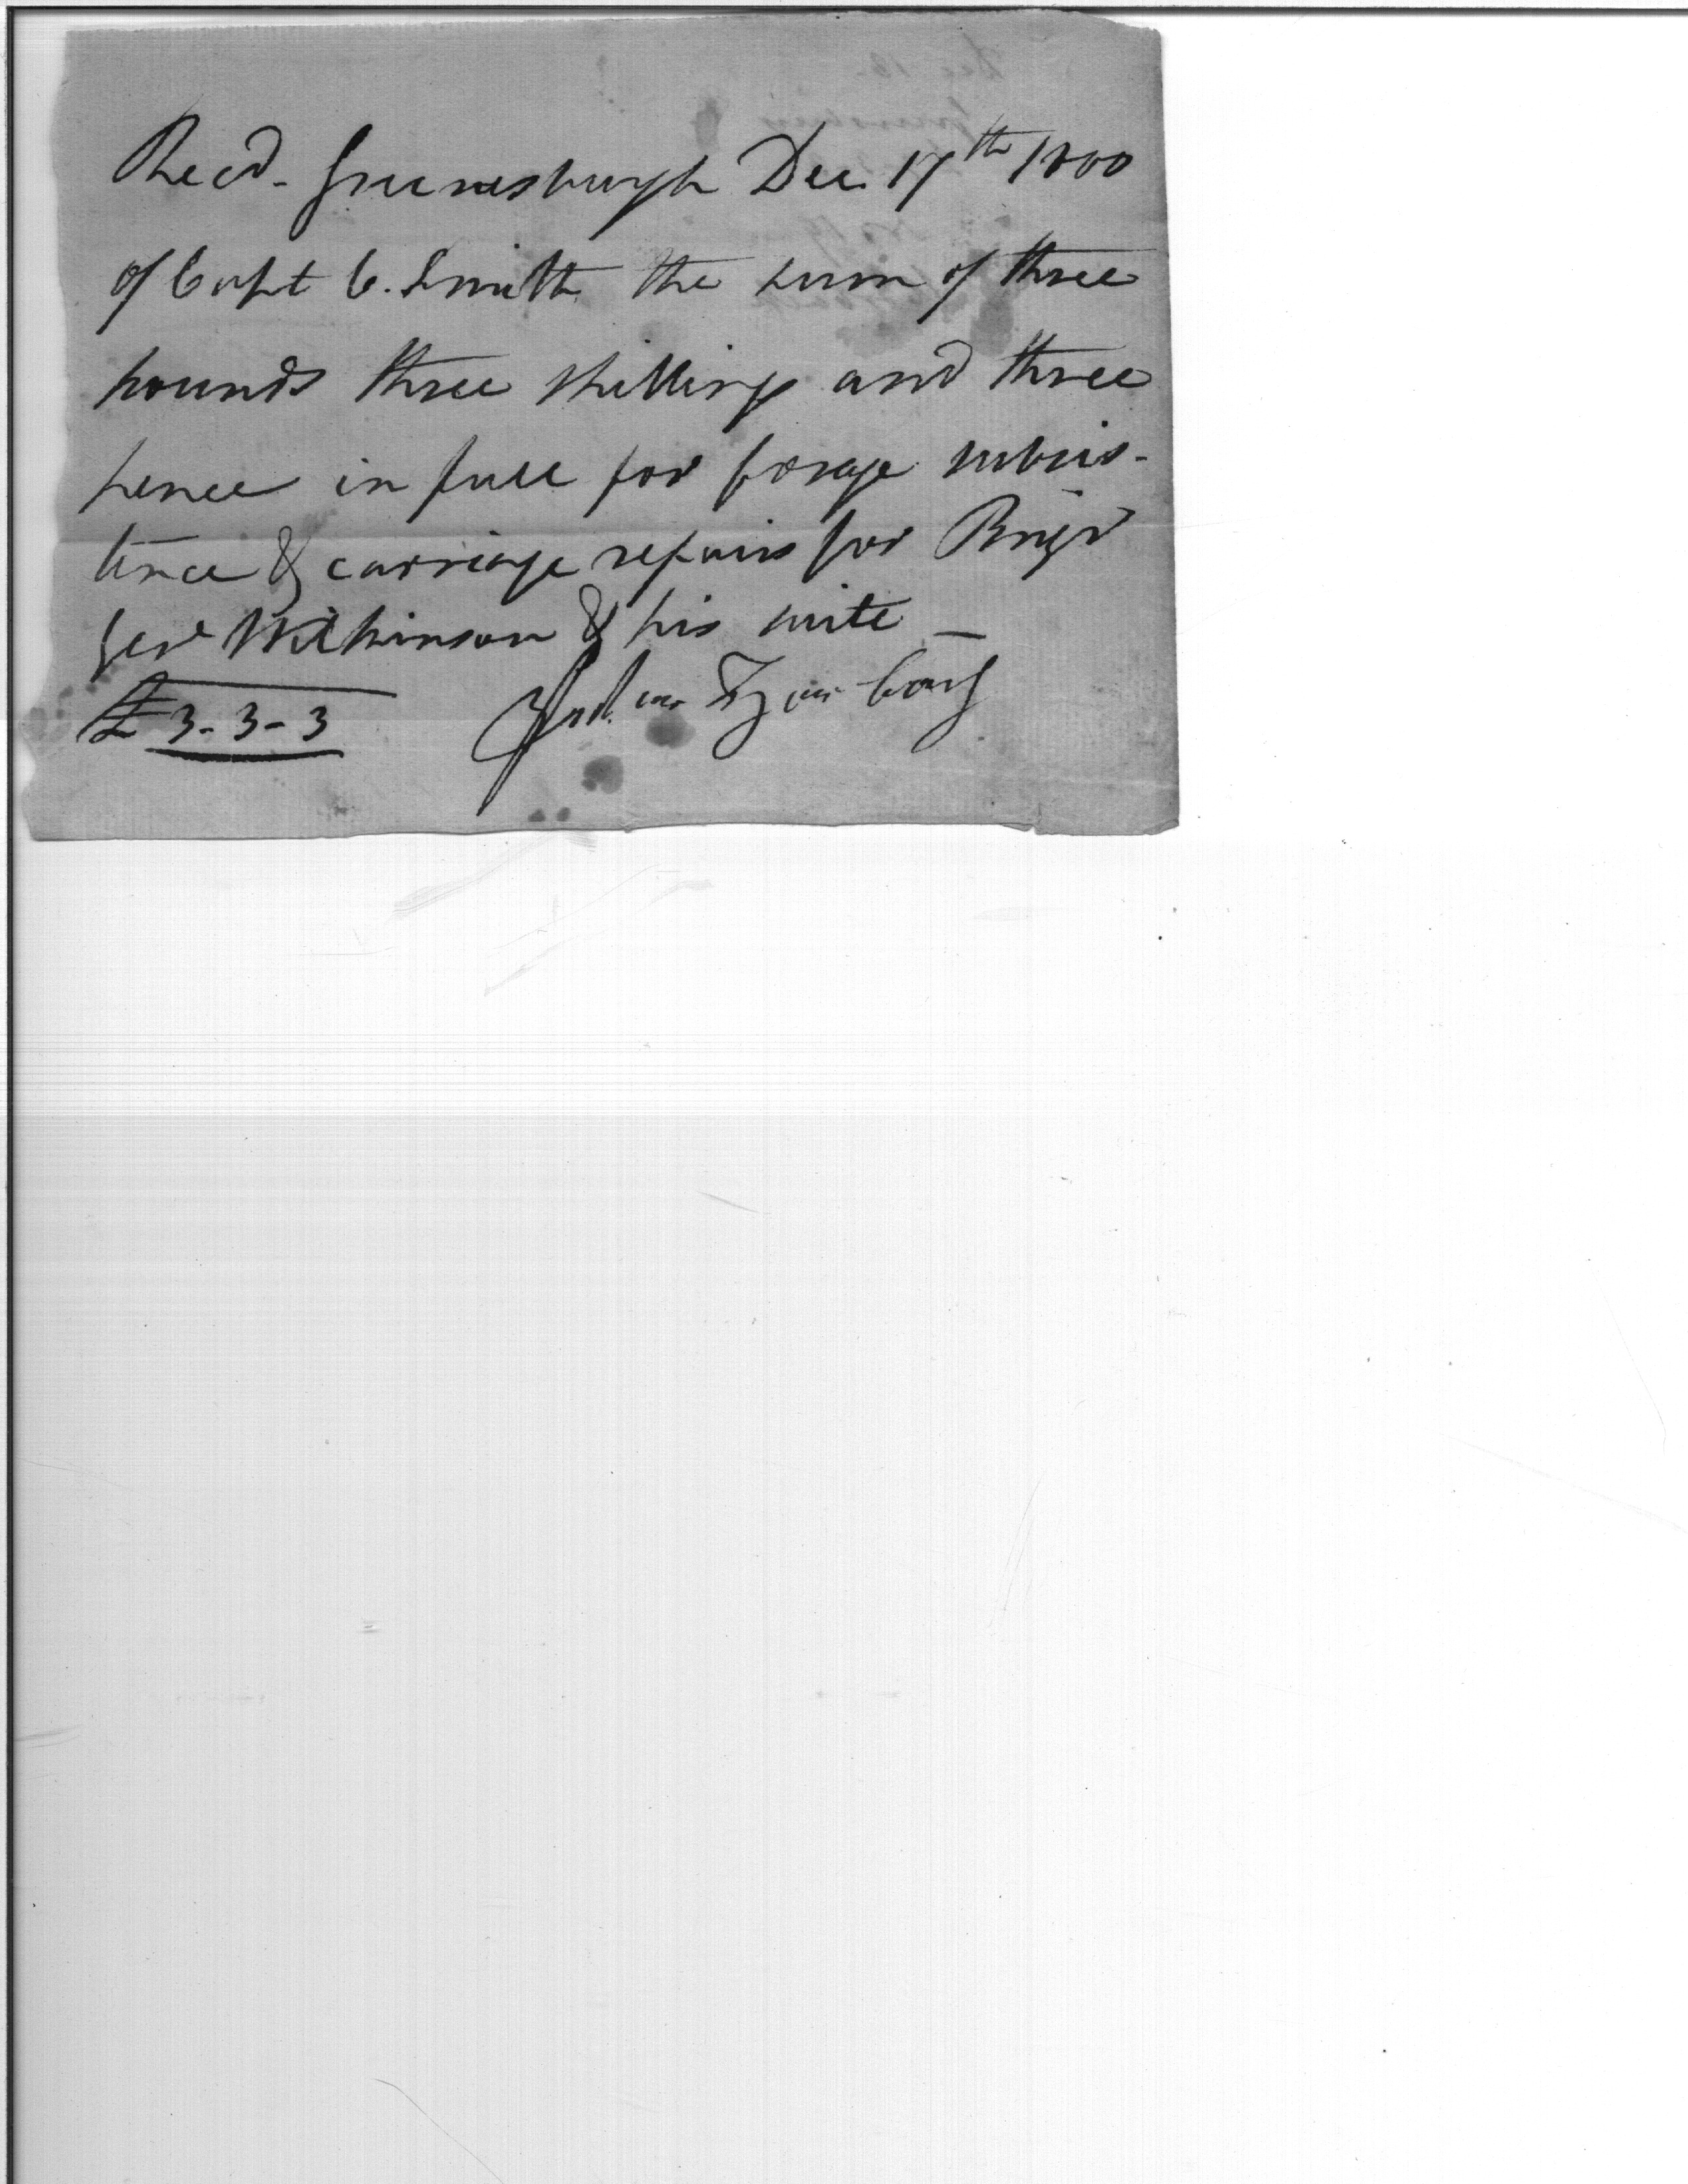 Recd. Greenesburgh Dec. 17th 1800
of Capt C. Smith the sum of three
pounds three shillings and three
pence in full for forage subsis-
tence & carriage repairs for Brigr
Genl Wilkinson & his suite —
£ 3-3-3